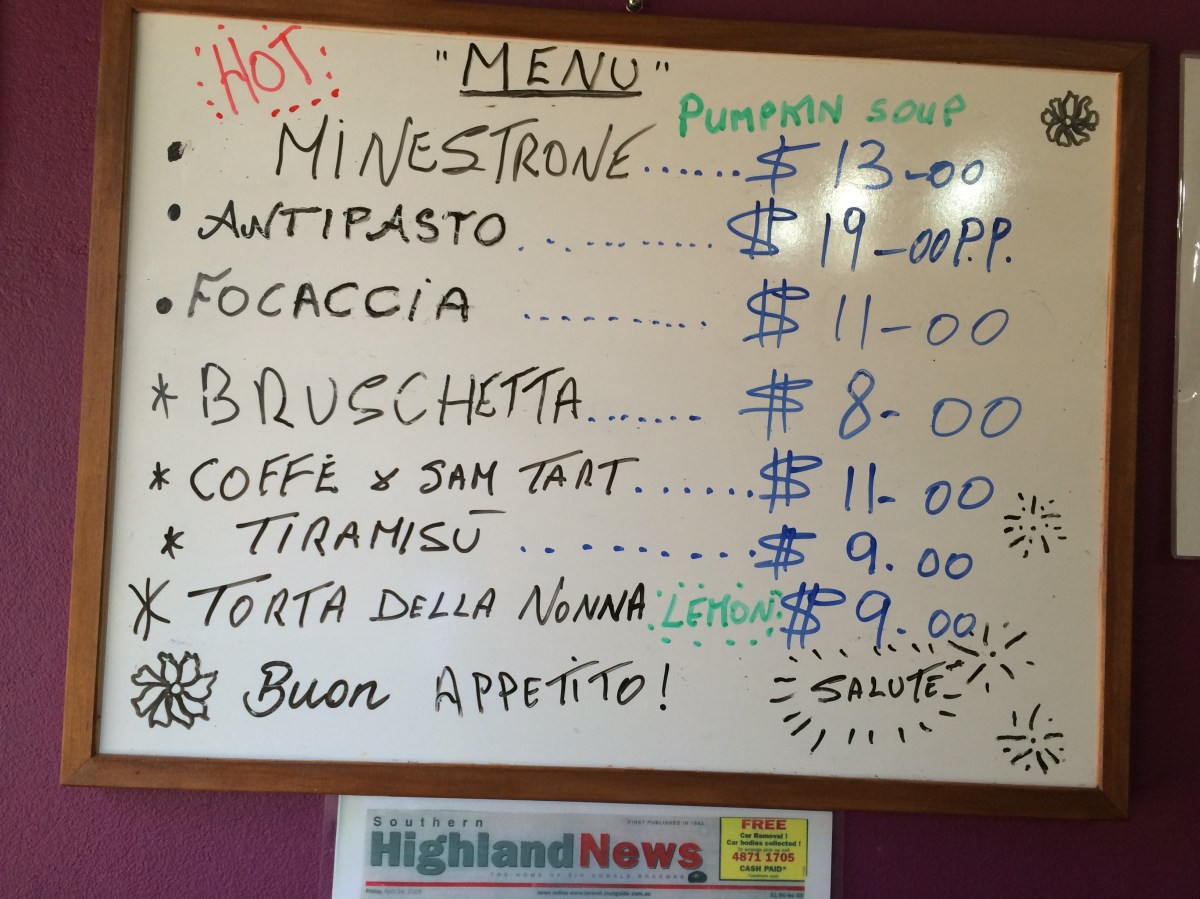 HOT "MENU"
PUMPKIN SOUP
• MINESTRONE......$ 13-00
• ANTIPASTO ........... $ 19-00 P.P.
• FOCACCIA ........... $ 11-00
* BRUSCHETTA....... $ 8-00
* COFFÈ & SAM TART ......$ 11-00
* TIRAMISÙ ..........$ 9.00
* TORTA DELLA NONNA LEMON $ 9.00
Buon APPETITO! SALUTE
Southern
FIRST PUBLISHED IN
Highland News
FREE
Car Removal!
Car bodies collected!
4871 1705
CASH PAID*